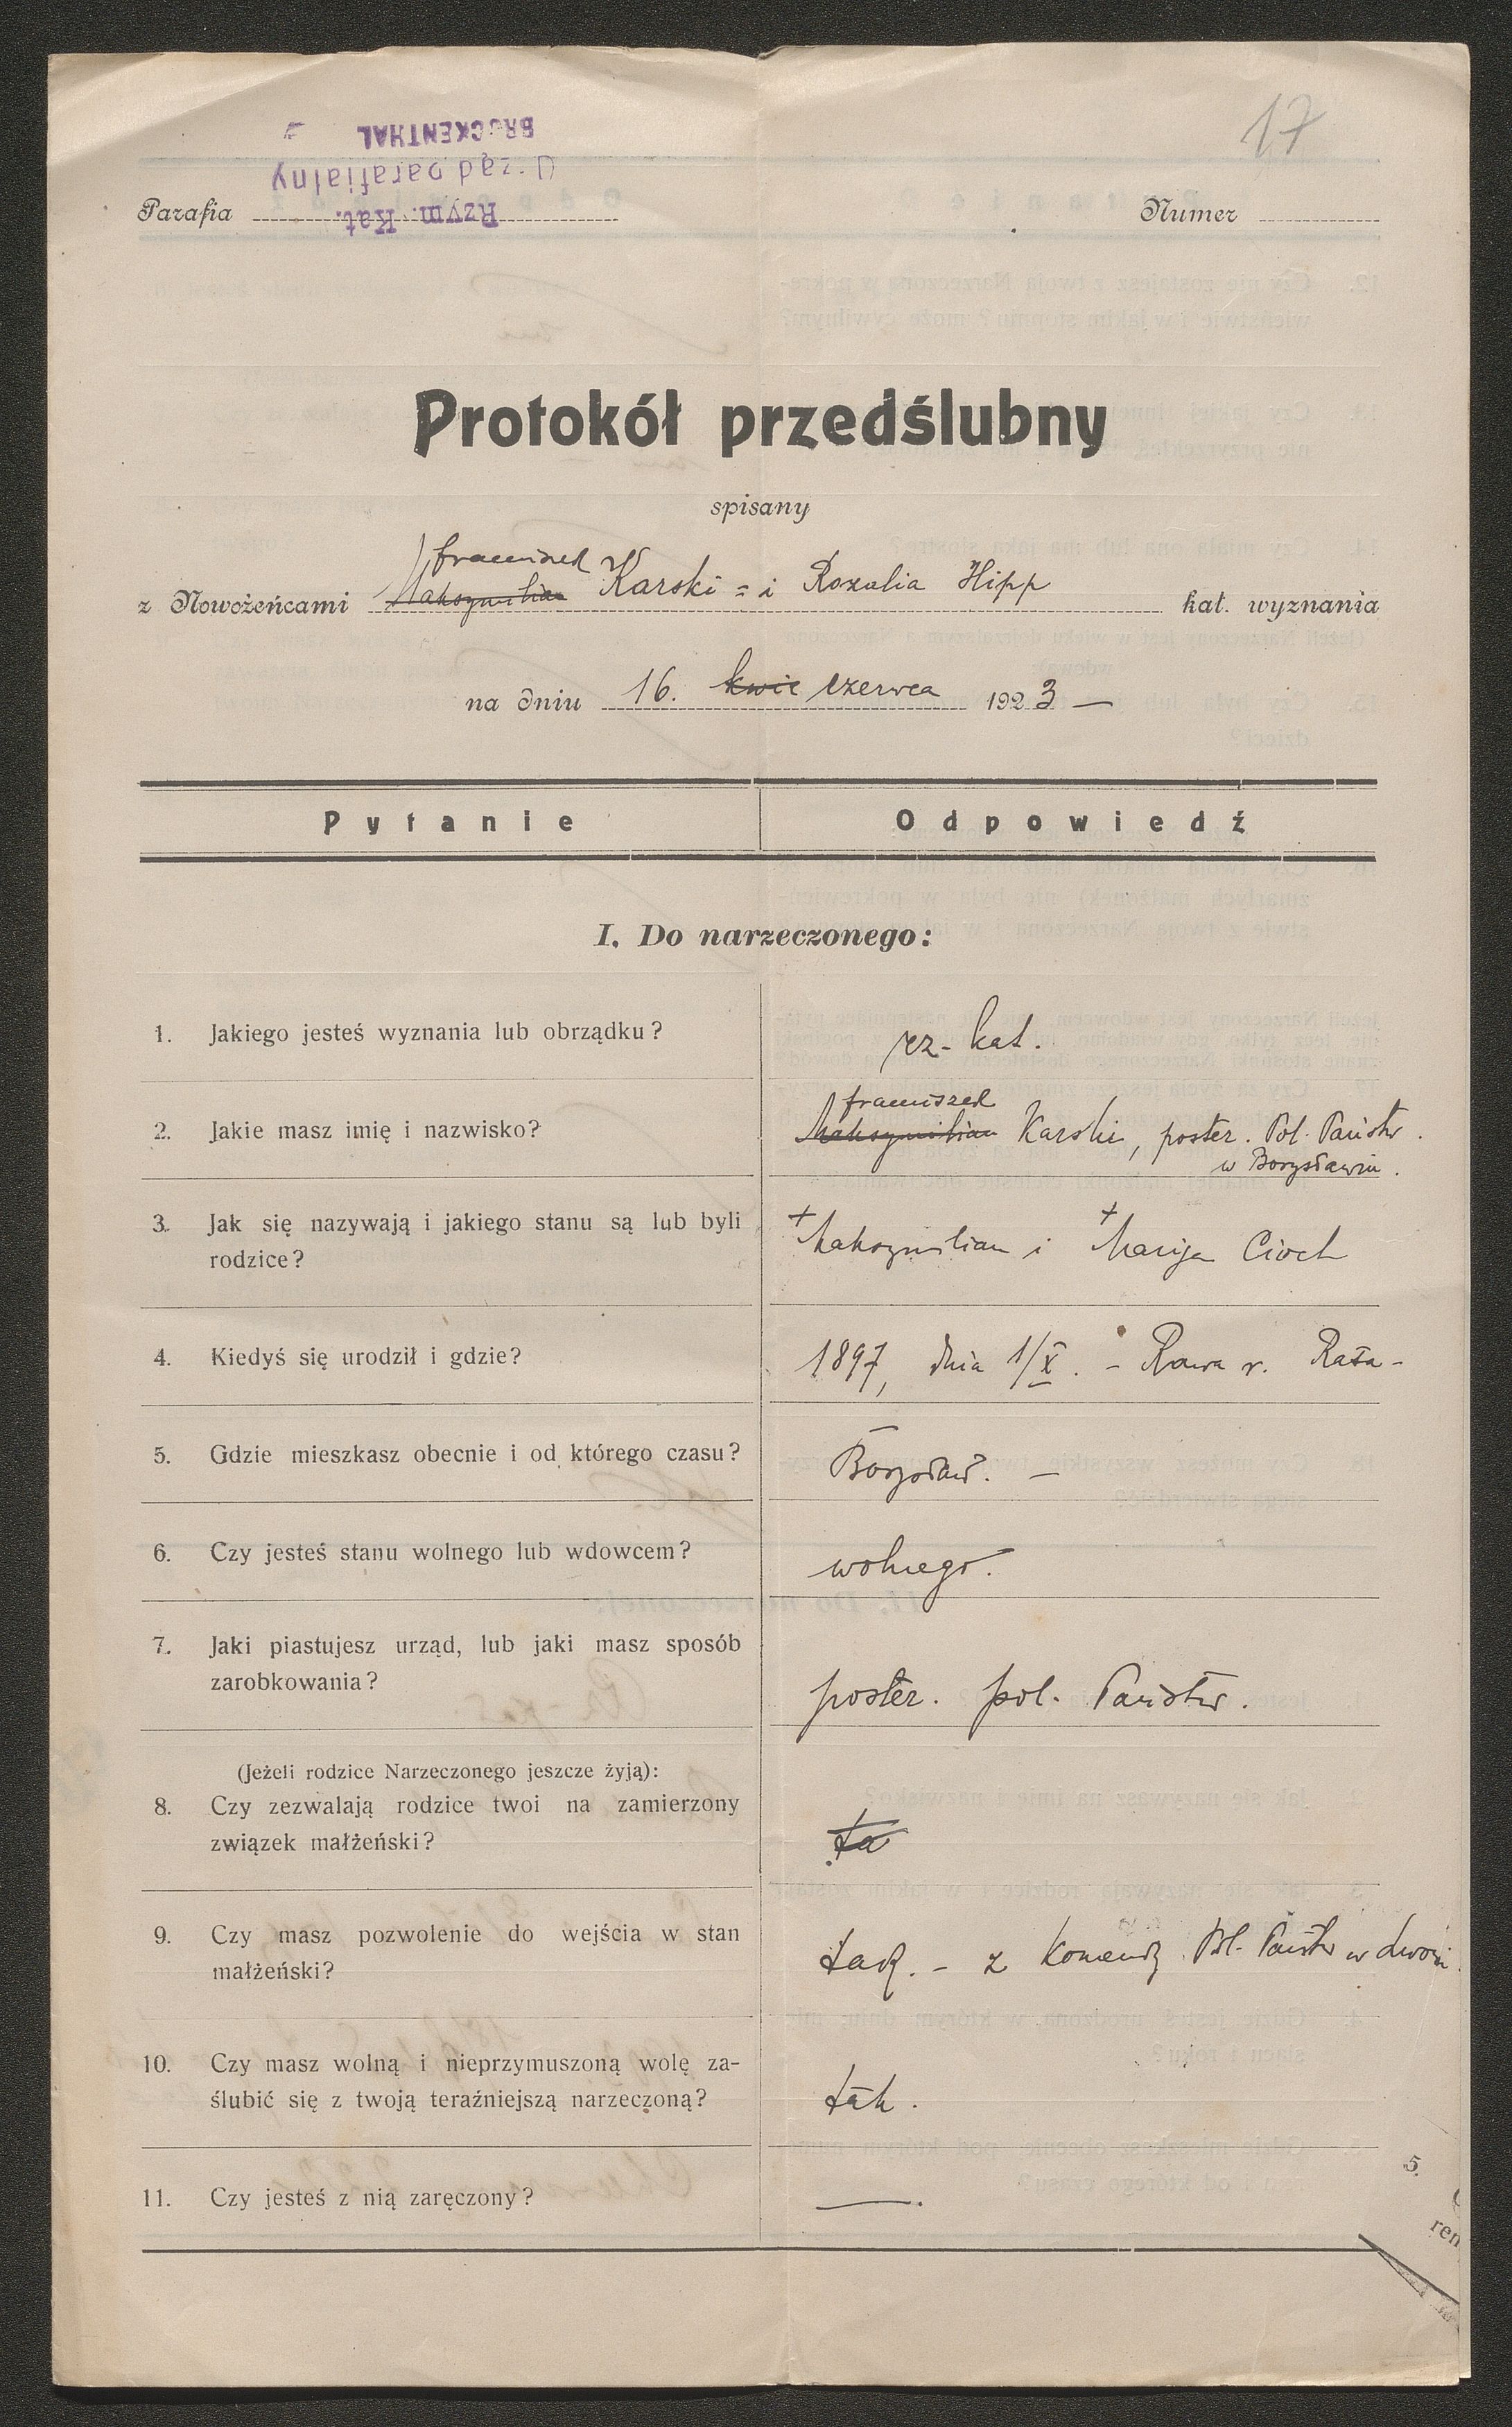 17
Rzym. Kat.
Urząd parafialny
BRUCKENTHAL
Parafia
Numer
Protokół przedślubny
spisany
franciszek
z Nowożeńcami Maksymilian Karski = i Rozalia Hipp kat. wyznania
na dniu 16. kwie czerwca 1923 —
Pytanie Odpowiedź
I. Do narzeczonego:
1. Jakiego jesteś wyznania lub obrządku? rz-kat.
franciszek
2. Jakie masz imię i nazwisko? Maksymilian Karski, poster. Pol. Państw.
w Borysławiu.
3. Jak się nazywają i jakiego stanu są lub byli
rodzice? + Maksymilian i + Marija Cioch
4. Kiedyś się urodził i gdzie? 1897, dnia 1/X. - Rawa r. Rata -
5. Gdzie mieszkasz obecnie i od którego czasu? Borysław. —
6. Czy jesteś stanu wolnego lub wdowcem? wolnego.
7. Jaki piastujesz urząd, lub jaki masz sposób
zarobkowania? poster. pol. Państw.
(Jeżeli rodzice Narzeczonego jeszcze żyją):
8. Czy zezwalają rodzice twoi na zamierzony
związek małżeński? ta
9. Czy masz pozwolenie do wejścia w stan
małżeński? tak. - z Komendy Pol. Państw w Lwowi
10. Czy masz wolną i nieprzymuszoną wolę za-
ślubić się z twoją teraźniejszą narzeczoną? tak.
11. Czy jesteś z nią zaręczony? —.
5.
ren